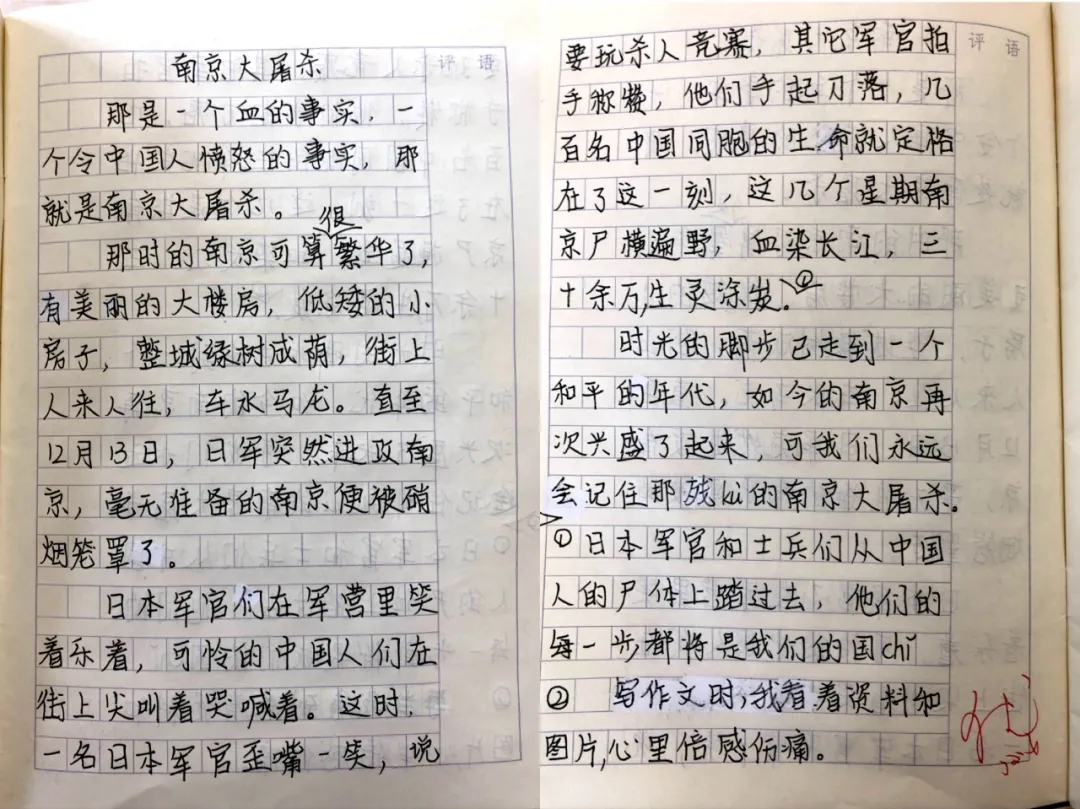 南京大屠杀
评语
那是一个血的事实,一
个令中国人愤怒的事实,那
就是南京大屠杀。
很
那时的南京可算繁华了,
有美丽的大楼房,低矮的小
房子,整城绿树成荫,街上
人来人往,车水马龙。直至
12月13日,日军突然进攻南
京,毫无准备的南京便被硝
烟笼罩了。
日本军官们在军营里笑
着乐着,可怜的中国人们在
街上尖叫着哭喊着。这时,
一名日本军官歪嘴一笑,说
评语
要玩杀人竞赛,其它军官拍
手称赞,他们手起刀落,几
百名中国同胞的生命就定格
在了这一刻,这几个星期南
京尸横遍野,血染长江,三
十余万,生灵涂炭。②
时光的脚步已走到一个
和平的年代,如今的南京再
次兴盛了起来,可我们永远
会记住那残kù的南京大屠杀。
①日本军官和士兵们从中国
人的尸体上踏过去,他们的
每一步都将是我们的国chǐ
② 写作文时,我看着资料和
图片,心里倍感伤痛。